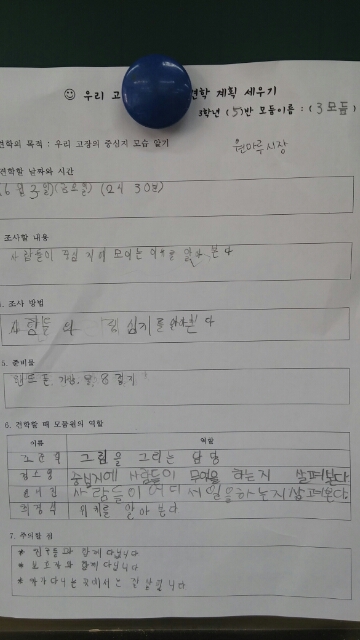 ☺ 우리 고 견학 계획 세우기
3학년 (5)반 모둠이름 : (3 모둠)
견학의 목적 : 우리 고장의 중심지 모습 알기
원마루시장
견학할 날짜와 시간
(6월 3일)(금요일) (2시 30분)
조사할 내용
사람들이 중심지에 모이는 이유를 알아 본다
조사 방법
사람들 중심지를
5. 준비물
핸드폰, 가방,
6. 견학할 때 모둠원의 역할
이름 역할
그림을 그리는 담당
김소영 중심지에 사람들이 무엇을 하는지 살펴본다
사람들이 어디서 일을하는지살펴본다
최경식 위치를 알아 본다
7. 주의할 점
* 친구들과 함께 다닙니다
* 보호자와 함께 다닙니다
* 차가 다니는 곳에서는